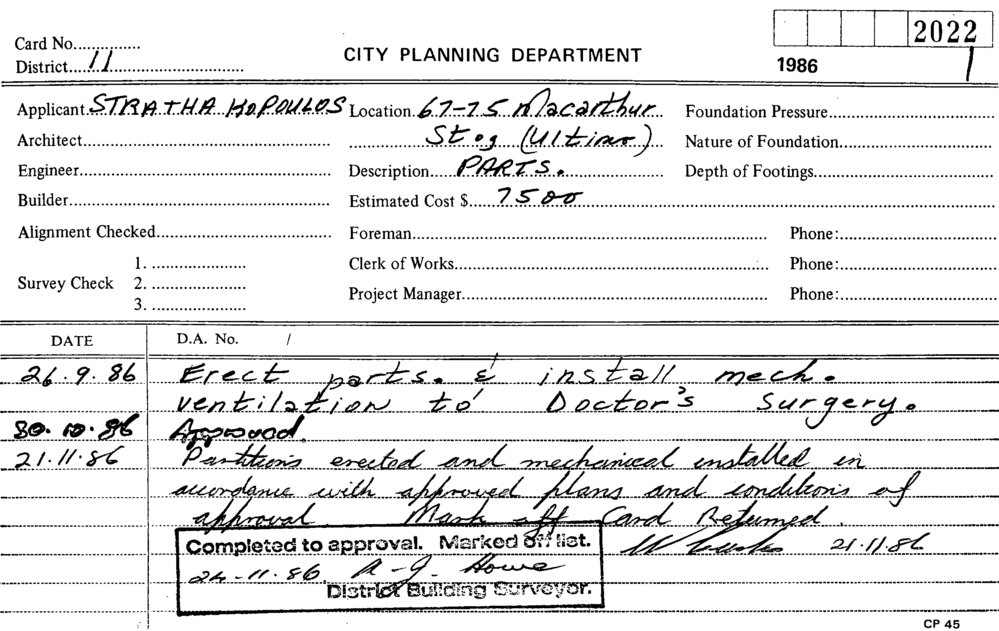 Card No...............
2022
District....11..............................
CITY PLANNING DEPARTMENT
1986
1
Applicant STRATHAKOPOULOS Location 67-75 Macarthur Foundation Pressure
Architect St (Ultimo) Nature of Foundation
Engineer Description PARTS. Depth of Footings
Builder Estimated Cost $ 7500
Alignment Checked Foreman Phone:
1. Clerk of Works Phone:
Survey Check 2.
Project Manager Phone:
3.
DATE D.A. No. /
26.9.86 Erect parts. & install mech.
ventilation to Doctor's Surgery.
30.10.86 Approved.
21.11.86 Partitions erected and mechanical installed in
accordance with approved plans and conditions of
approval. Mark off Card Returned.
Completed to approval. Marked off list. 21.11.86
24-11-86. R-J. Howe
District Building Surveyor.
CP 45